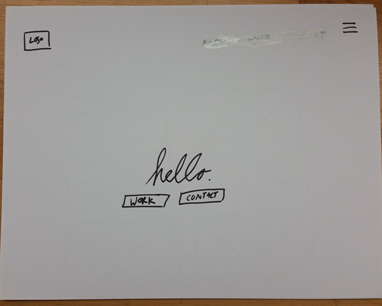 LOGO
hello.
WORK CONTACT